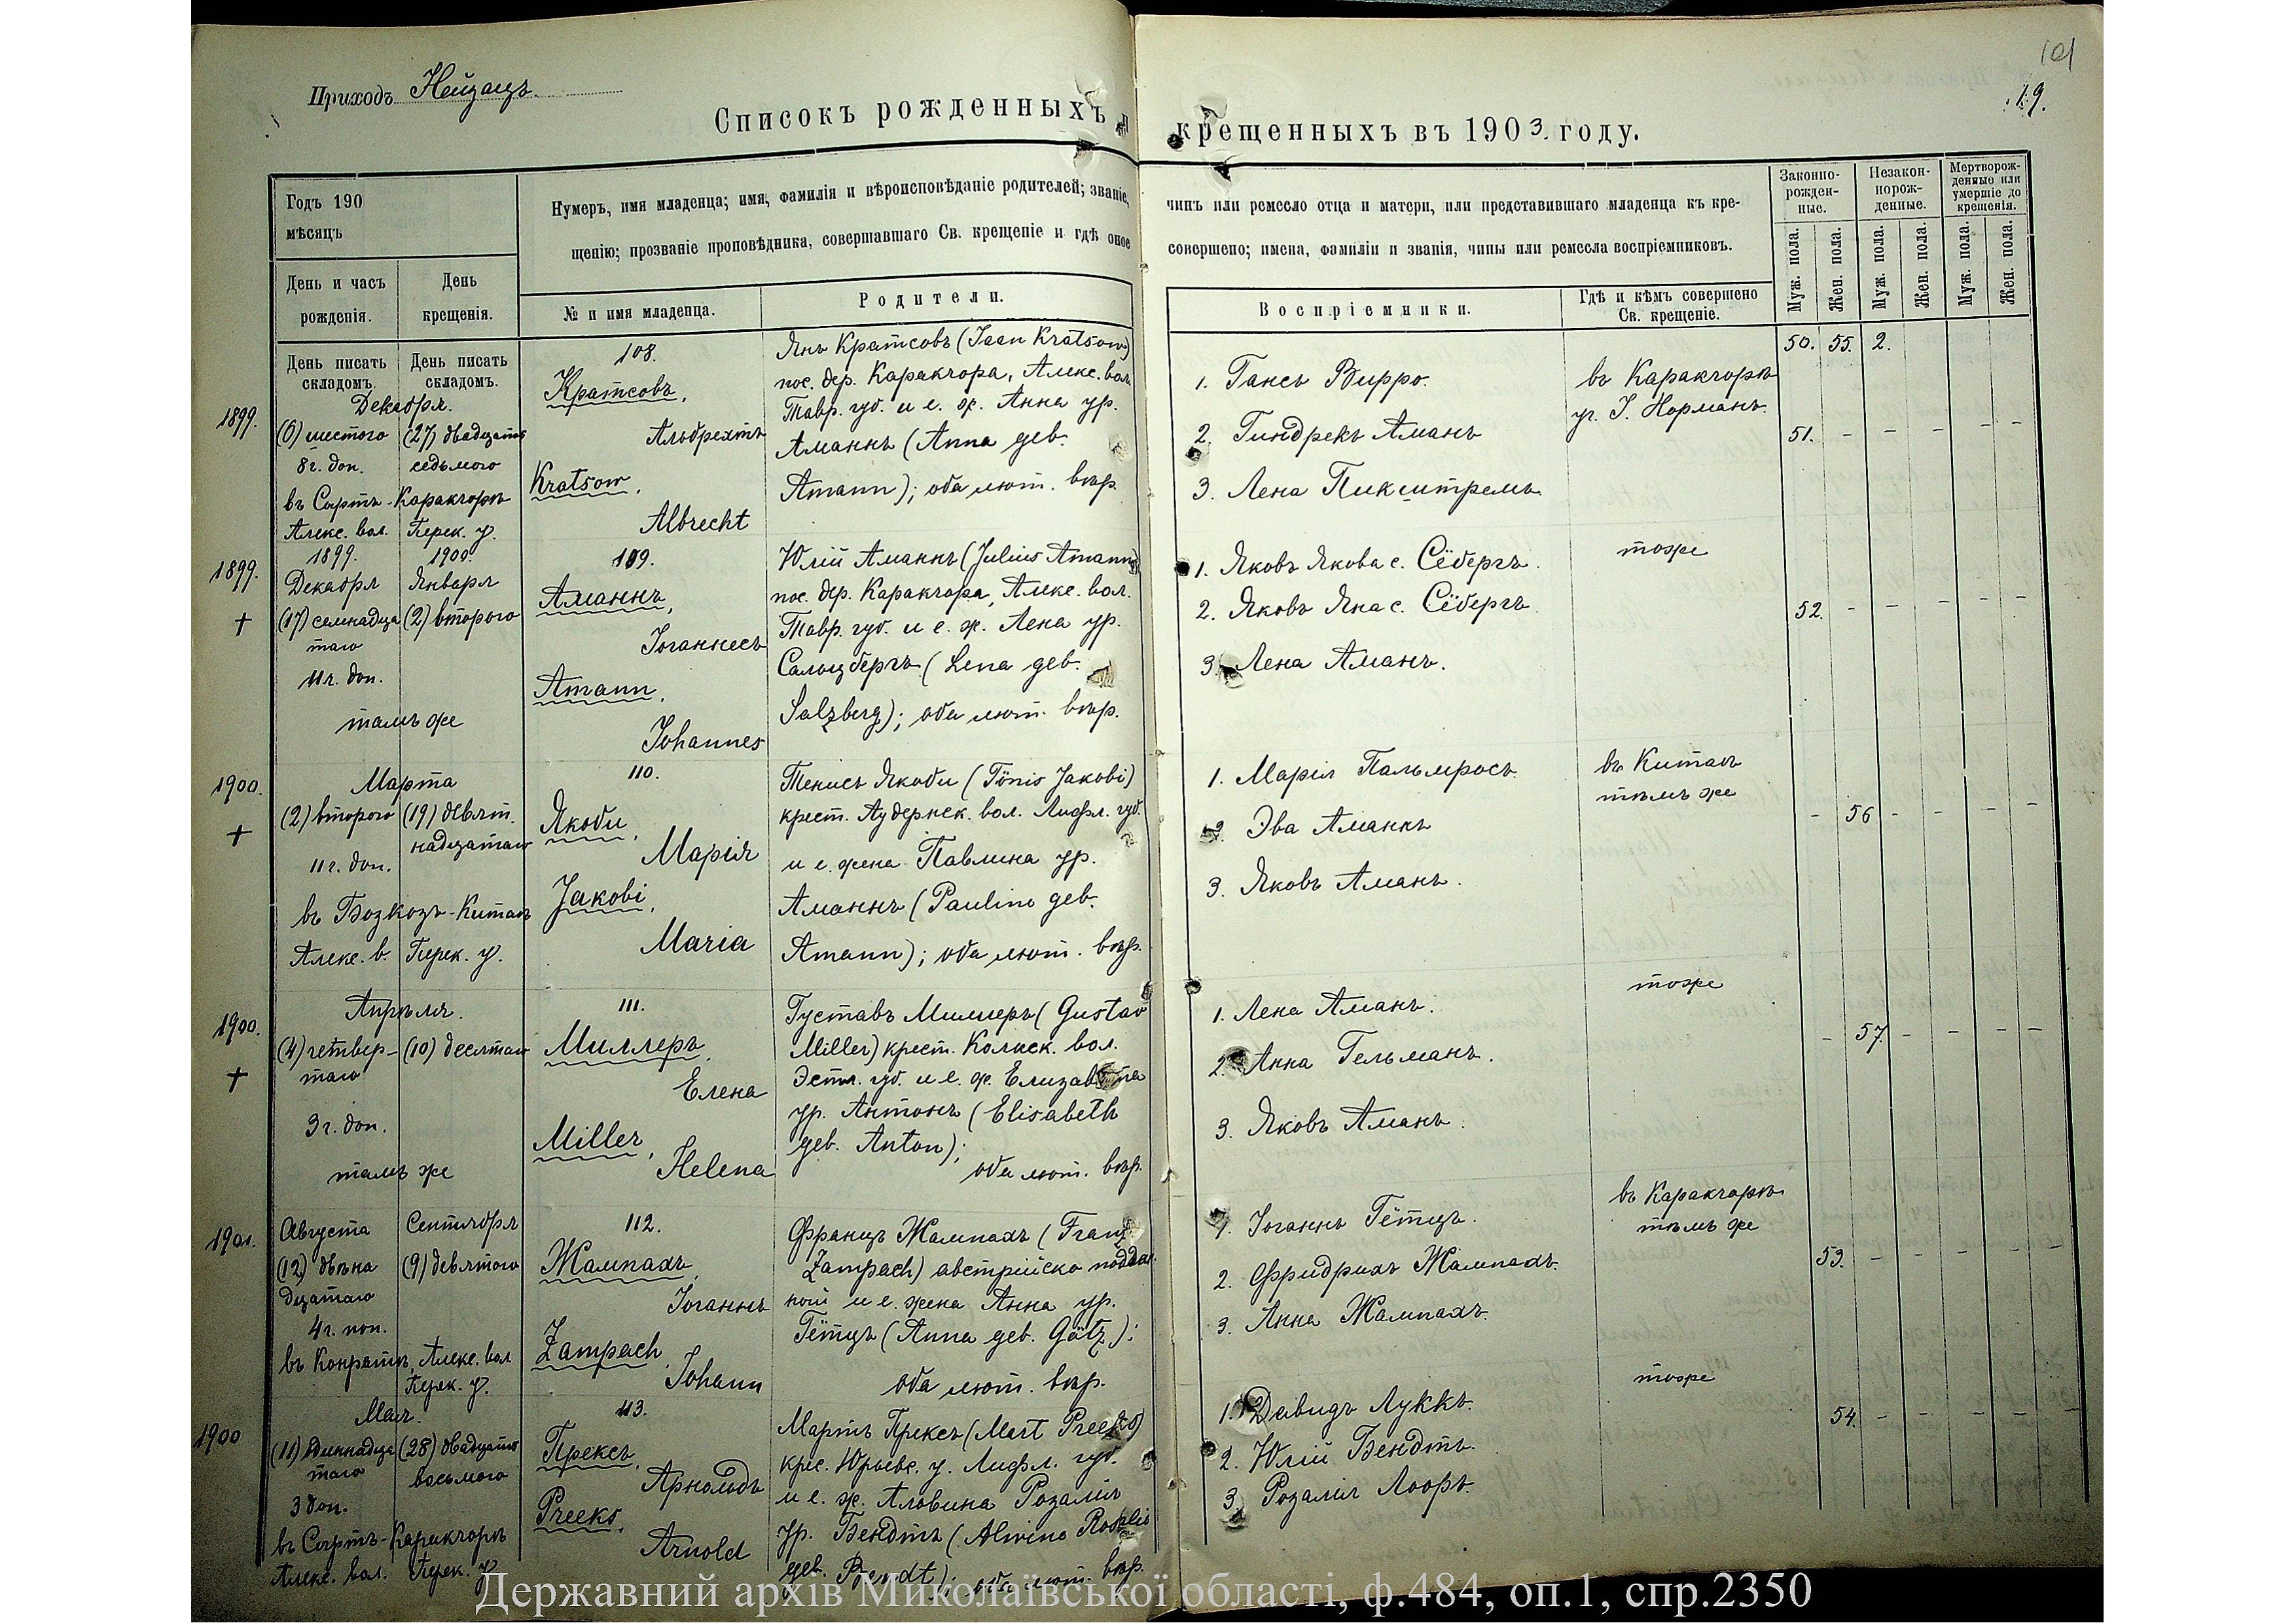 Приходъ Нейзацъ.
101
19.
Списокъ рожденныхъ и крещенныхъ въ 1903. году.
Годъ 190
мѣсяцъ
Нумеръ, имя младенца; имя, фамилія и вѣроисповѣданіе родителей; званіе, чинъ или ремесло отца и матери, или представившаго младенца къ кре-
щенію; прозваніе проповѣдника, совершавшаго Св. крещеніе и гдѣ оное совершено; имена, фамиліи и званія, чины или ремесла воспріемниковъ.
Законно-рожден-ные.
Незакон-норож-денные.
Мертворож-денные или умершіе до крещенія.
Муж. пола.
Жен. пола.
Муж. пола.
Жен. пола.
Муж. пола.
Жен. пола.
День и часъ рожденія.
День крещенія.
№ и имя младенца.
Родители.
Воспріемники.
Гдѣ и кѣмъ совершено Св. крещеніе.
День писать складомъ.
День писать складомъ.
50. 55. 2.
1899.
Декабря.
(6) шестого
8 ч. доп.
(27) двадцать
седьмого
въ Сыртъ-Каракчорѣ
Алекс. вол. Перек. у.
108.
Кратсовъ,
Альбрехтъ
Kratsow,
Albrecht
Янъ Кратсовъ (Jaan Kratsow)
пос. дер. Каракчора, Алекс. вол.
Тавр. губ. и е. ж. Анна ур.
Аманнъ (Anna geb.
Amann); оба лют. вѣр.
1. Гансъ Вирро.
2. Гиндрекъ Аманъ
3. Лена Пикштремъ
въ Каракчорѣ
уч. І. Норманъ.
51. - - - - -
1899.
+
1899.
Декабря
(17) семнадца
таго
11 ч. доп.
1900.
Января
(2) второго
тамъ же
109.
Аманнъ,
Іоганнесъ
Amann,
Johannes
Юлій Аманнъ (Julius Amann)
пос. дер. Каракчора, Алекс. вол.
Тавр. губ. и е. ж. Лена ур.
Сальцбергъ (Lena geb.
Salzberg); оба лют. вѣр.
1. Яковъ Якова с. Сёбергъ.
2. Яковъ Яна с. Сёбергъ.
3. Лена Аманъ.
тоже
52. - - - - -
1900.
+
Марта
(2) второго
11 ч. доп.
(19) девят
надцатаго
въ Бозкозъ-Китаѣ
Алекс. в. Перек. у.
110.
Якоби,
Марія
Jakobi,
Maria
Тенисъ Якоби (Tönis Jakobi)
крест. Аудернск. вол. Лифл. губ.
и е. жена Павлина ур.
Аманнъ (Pauline geb.
Amann); оба лют. вѣр.
1. Марія Пальмросъ
2. Эва Аманнъ
3. Яковъ Аманъ.
въ Китаѣ
тѣмъ же
- 56 - - - -
1900.
+
Апрѣля.
(4) четвер-
таго
3 ч. доп.
(10) десятаго
тамъ же
111.
Миллеръ,
Елена
Miller,
Helena
Густавъ Миллеръ (Gustav
Miller) крест. Колкск. вол.
Эстл. губ. и е. ж. Елизавета
ур. Антонъ (Elisabeth
geb. Anton);
оба лют. вѣр.
1. Лена Аманъ.
2. Анна Гельманъ.
3. Яковъ Аманъ.
тоже
- 57. - - - -
1901.
Августа
(12) двѣна
дцатаго
4 ч. поп.
Сентября
(9) девятого
въ Конратъ, Алекс. вол
Перек. у.
112.
Жампахъ,
Іоганнъ
Zampach,
Johann
Францъ Жампахъ (Franz
Zampach) австрійско поддан
ный и е. жена Анна ур.
Гётцъ (Anna geb. Götz);
оба лют. вѣр.
1. Іоганнъ Гётцъ.
2. Фридрихъ Жампахъ.
3. Анна Жампахъ.
въ Каракчорѣ
тѣмъ же
53. - - - - -
1900
Мая.
(11) одиннадца
таго
3 доп.
(28) двадцать
восьмого
въ Сыртъ-Каракчорѣ
Алекс. вол. Перек. у.
113.
Прексъ,
Арнольдъ
Preeks,
Arnold
Мартъ Прексъ (Mart Preeks)
крес. Юрьевс. у. Лифл. губ.
и е. ж. Альвина Розалія
ур. Бендтъ (Alwine Rosalie
geb. Bendt); оба лют. вѣр.
1. Давидъ Луккъ.
2. Юлій Бендтъ.
3. Розалія Лооръ.
тоже
54. - - - - -
Державний архів Миколаївської області, ф.484, оп.1, спр.2350